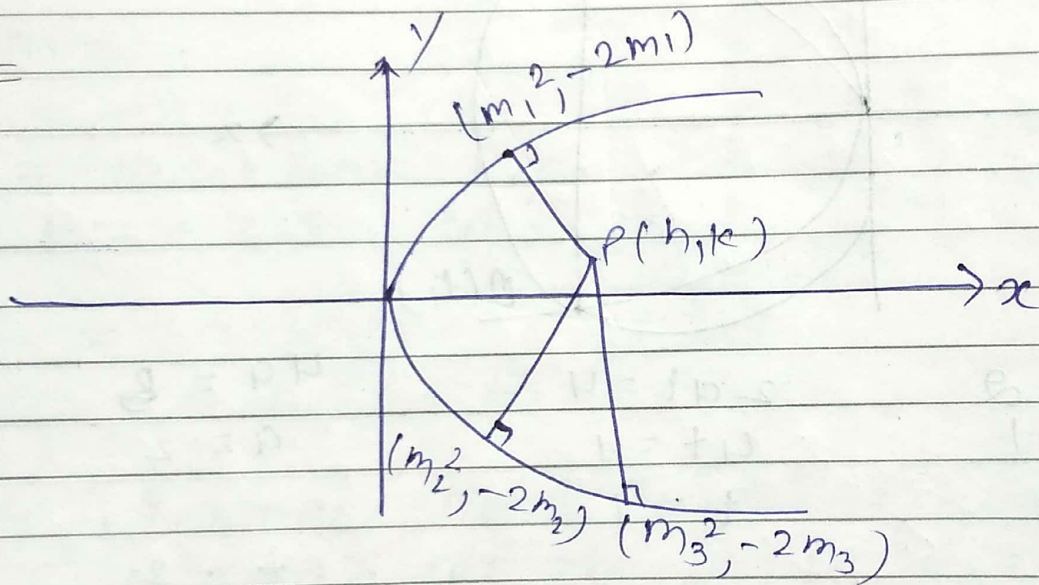 y
(m₁², -2m₁)
P(h,k)
x
(m₂², -2m₂)
(m₃², -2m₃)